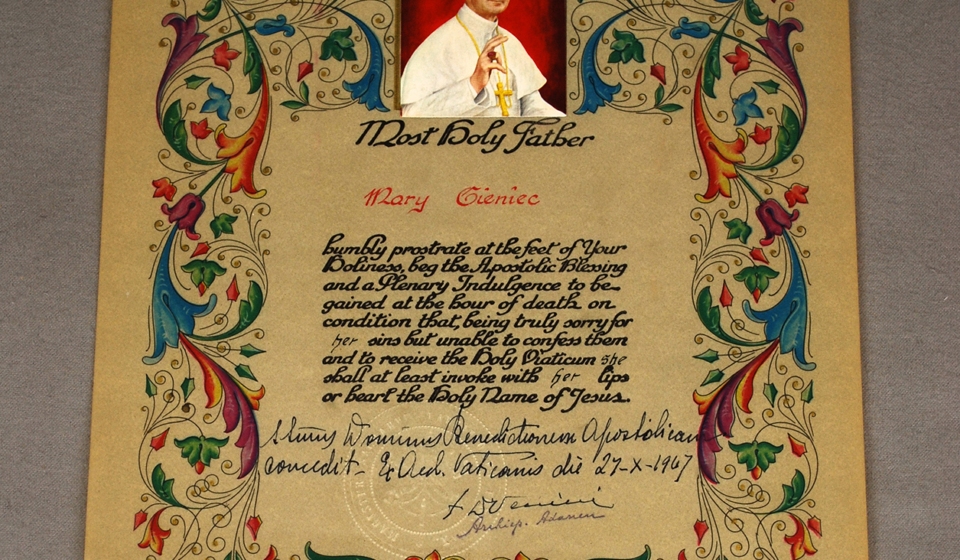 Most Holy Father
Mary Gieniec
humbly prostrate at the feet of Your
Holiness, beg the Apostolic Blessing
and a Plenary Indulgence to be
gained at the hour of death on
condition that, being truly sorry for
her sins but unable to confess them
and to receive the Holy Viaticum she
shall at least invoke with her lips
or heart the Holy Name of Jesus.
Dominus Benedictionem Apostolicam
concedit - Ex Aed. Vaticanis die 27-X-1967
+ D Venini
Archiep. Adanen